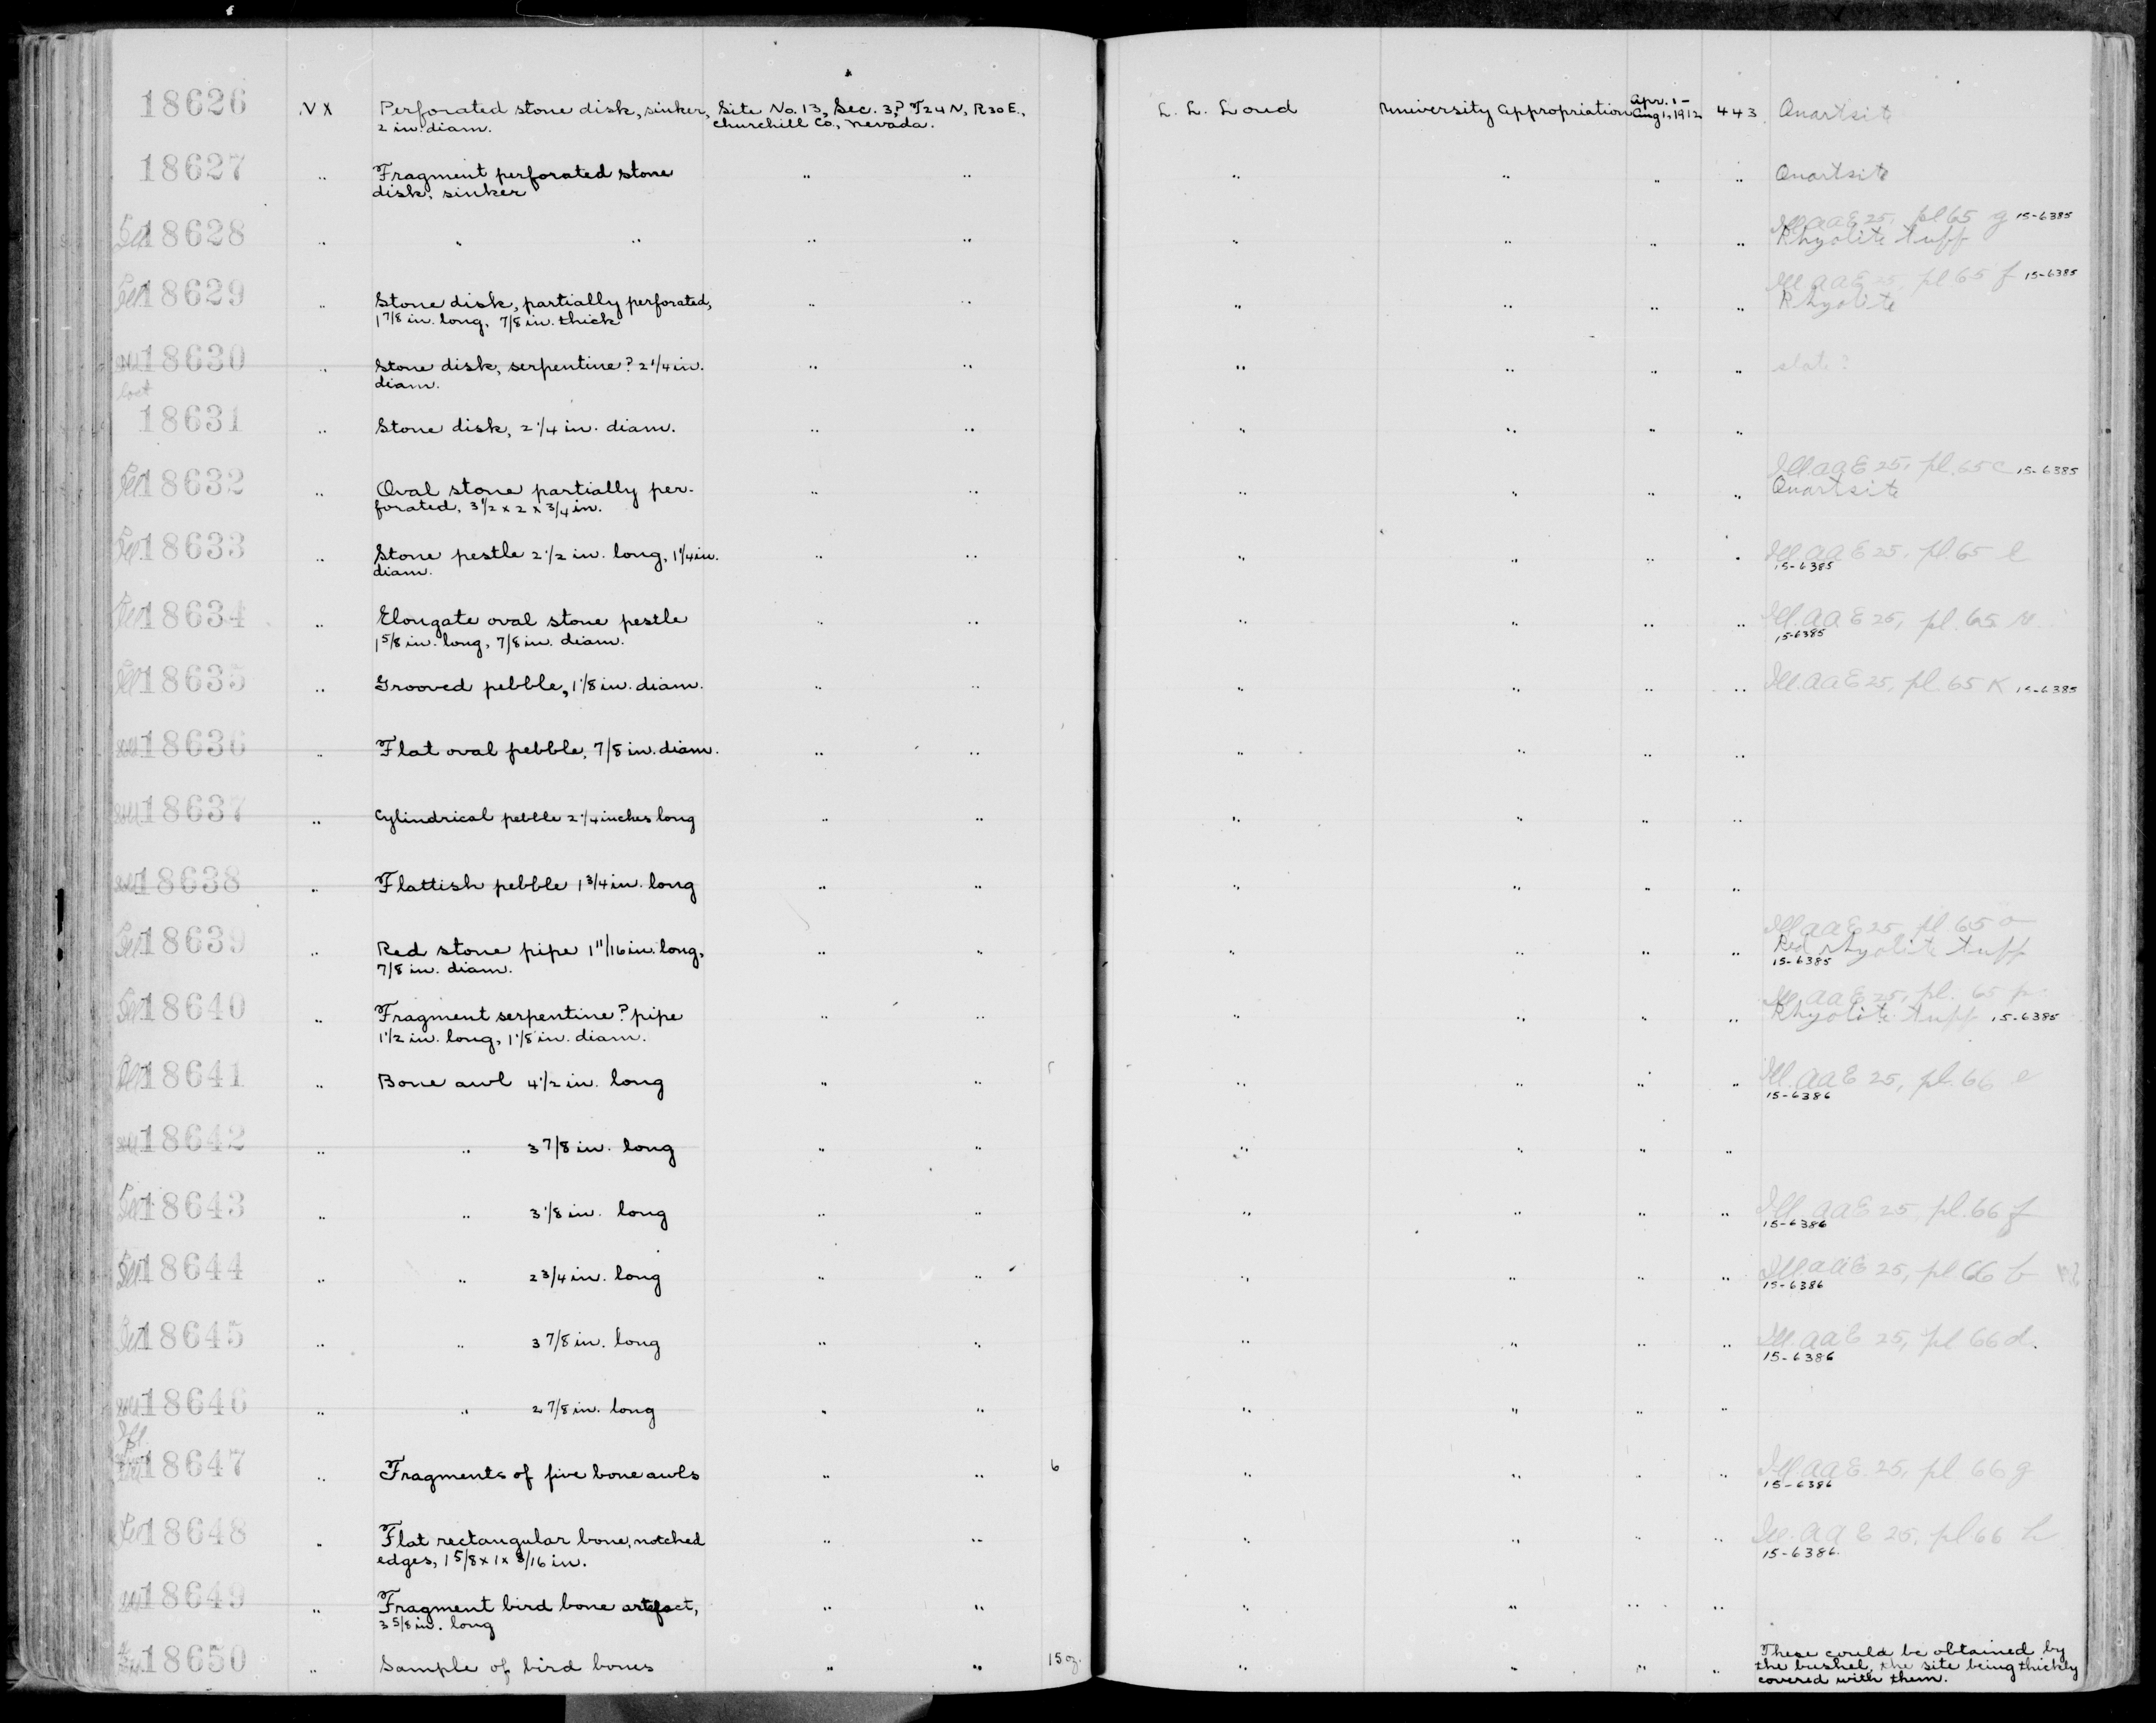 18626 .VX Perforated stone disk, sinker, Site No. 13, Sec. 3,? T24N, R30E., L. L. Loud University Appropriation Apr. 1- 443 Quartsite
2 in. diam. Churchill Co., Nevada. Aug 1, 1912
18627 " Fragment perforated stone " " " " " " Quartsite
disk, sinker
Ill. AAE 25, pl 65 g 15-6385
Ill 18628 " " " " " " " " " Rhyolite tuff
Ill. AAE 25, pl 65 f 15-6385
Ill 18629 " Stone disk, partially perforated, " " " " " " Rhyolite
1 7/8 in. long, 7/8 in. thick
18630 " Stone disk, serpentine? 2 1/4 in. " " " " " " slate?
diam.
lost
18631 " Stone disk, 2 1/4 in. diam. " " " " " "
Ill. AAE 25, pl. 65 c 15-6385
Ill 18632 " Oval stone partially per- " " " " " " Quartsite
forated, 3 1/2 x 2 x 3/4 in.
Ill 18633 " Stone pestle 2 1/2 in. long, 1 1/4 in. " " " " " " Ill. AAE 25, pl. 65 l
diam. 15-6385
Ill 18634 " Elongate oval stone pestle " " " " " " Ill. AAE 25, pl. 65
1 5/8 in. long, 7/8 in. diam. 15-6385
Ill 18635 " Grooved pebble, 1 1/8 in. diam. " " " " " " Ill. AAE 25, pl. 65 K 15-6385
18636 " Flat oval pebble, 7/8 in. diam. " " " " " "
18637 " Cylindrical pebble 2 1/4 inches long " " " " " "
18638 " Flattish pebble 1 3/4 in. long " " " " " "
Ill AAE 25, pl. 65 o
Ill 18639 " Red stone pipe 1 11/16 in. long, " " " " " " Red rhyolite tuff
7/8 in. diam. 15-6385
Ill. AAE 25, pl. 65 p.
Ill 18640 " Fragment serpentine? pipe " " " " " " Rhyolite tuff 15-6385
1 1/2 in. long, 1 1/8 in. diam.
Ill 18641 " Bone awl 4 1/2 in. long " " " " " " Ill. AAE 25, pl. 66 e
15-6386
18642 " " 3 7/8 in. long " " " " " "
Ill 18643 " " 3 1/8 in. long " " " " " " Ill. AAE 25, pl. 66 f
15-6386
Ill 18644 " " 2 3/4 in. long " " " " " " Ill. AAE 25, pl 66 b
15-6386
Ill 18645 " " 3 7/8 in. long " " " " " " Ill. AAE 25, pl 66 d.
15-6386
18646 " " 2 7/8 in. long " " " " " "
18647 " Fragments of five bone awls " " 6 " " " " Ill. AAE. 25, pl 66 g
15-6386
Ill 18648 " Flat rectangular bone, notched " " " " " " Ill. AAE 25, pl 66 h
edges, 1 5/8 x 1 x 3/16 in. 15-6386.
18649 " Fragment bird bone artefact, " " " " " "
3 5/8 in. long
These could be obtained by
18650 " Sample of bird bones " " 15 oz. " " " " the bushel, the site being thickly
covered with them.